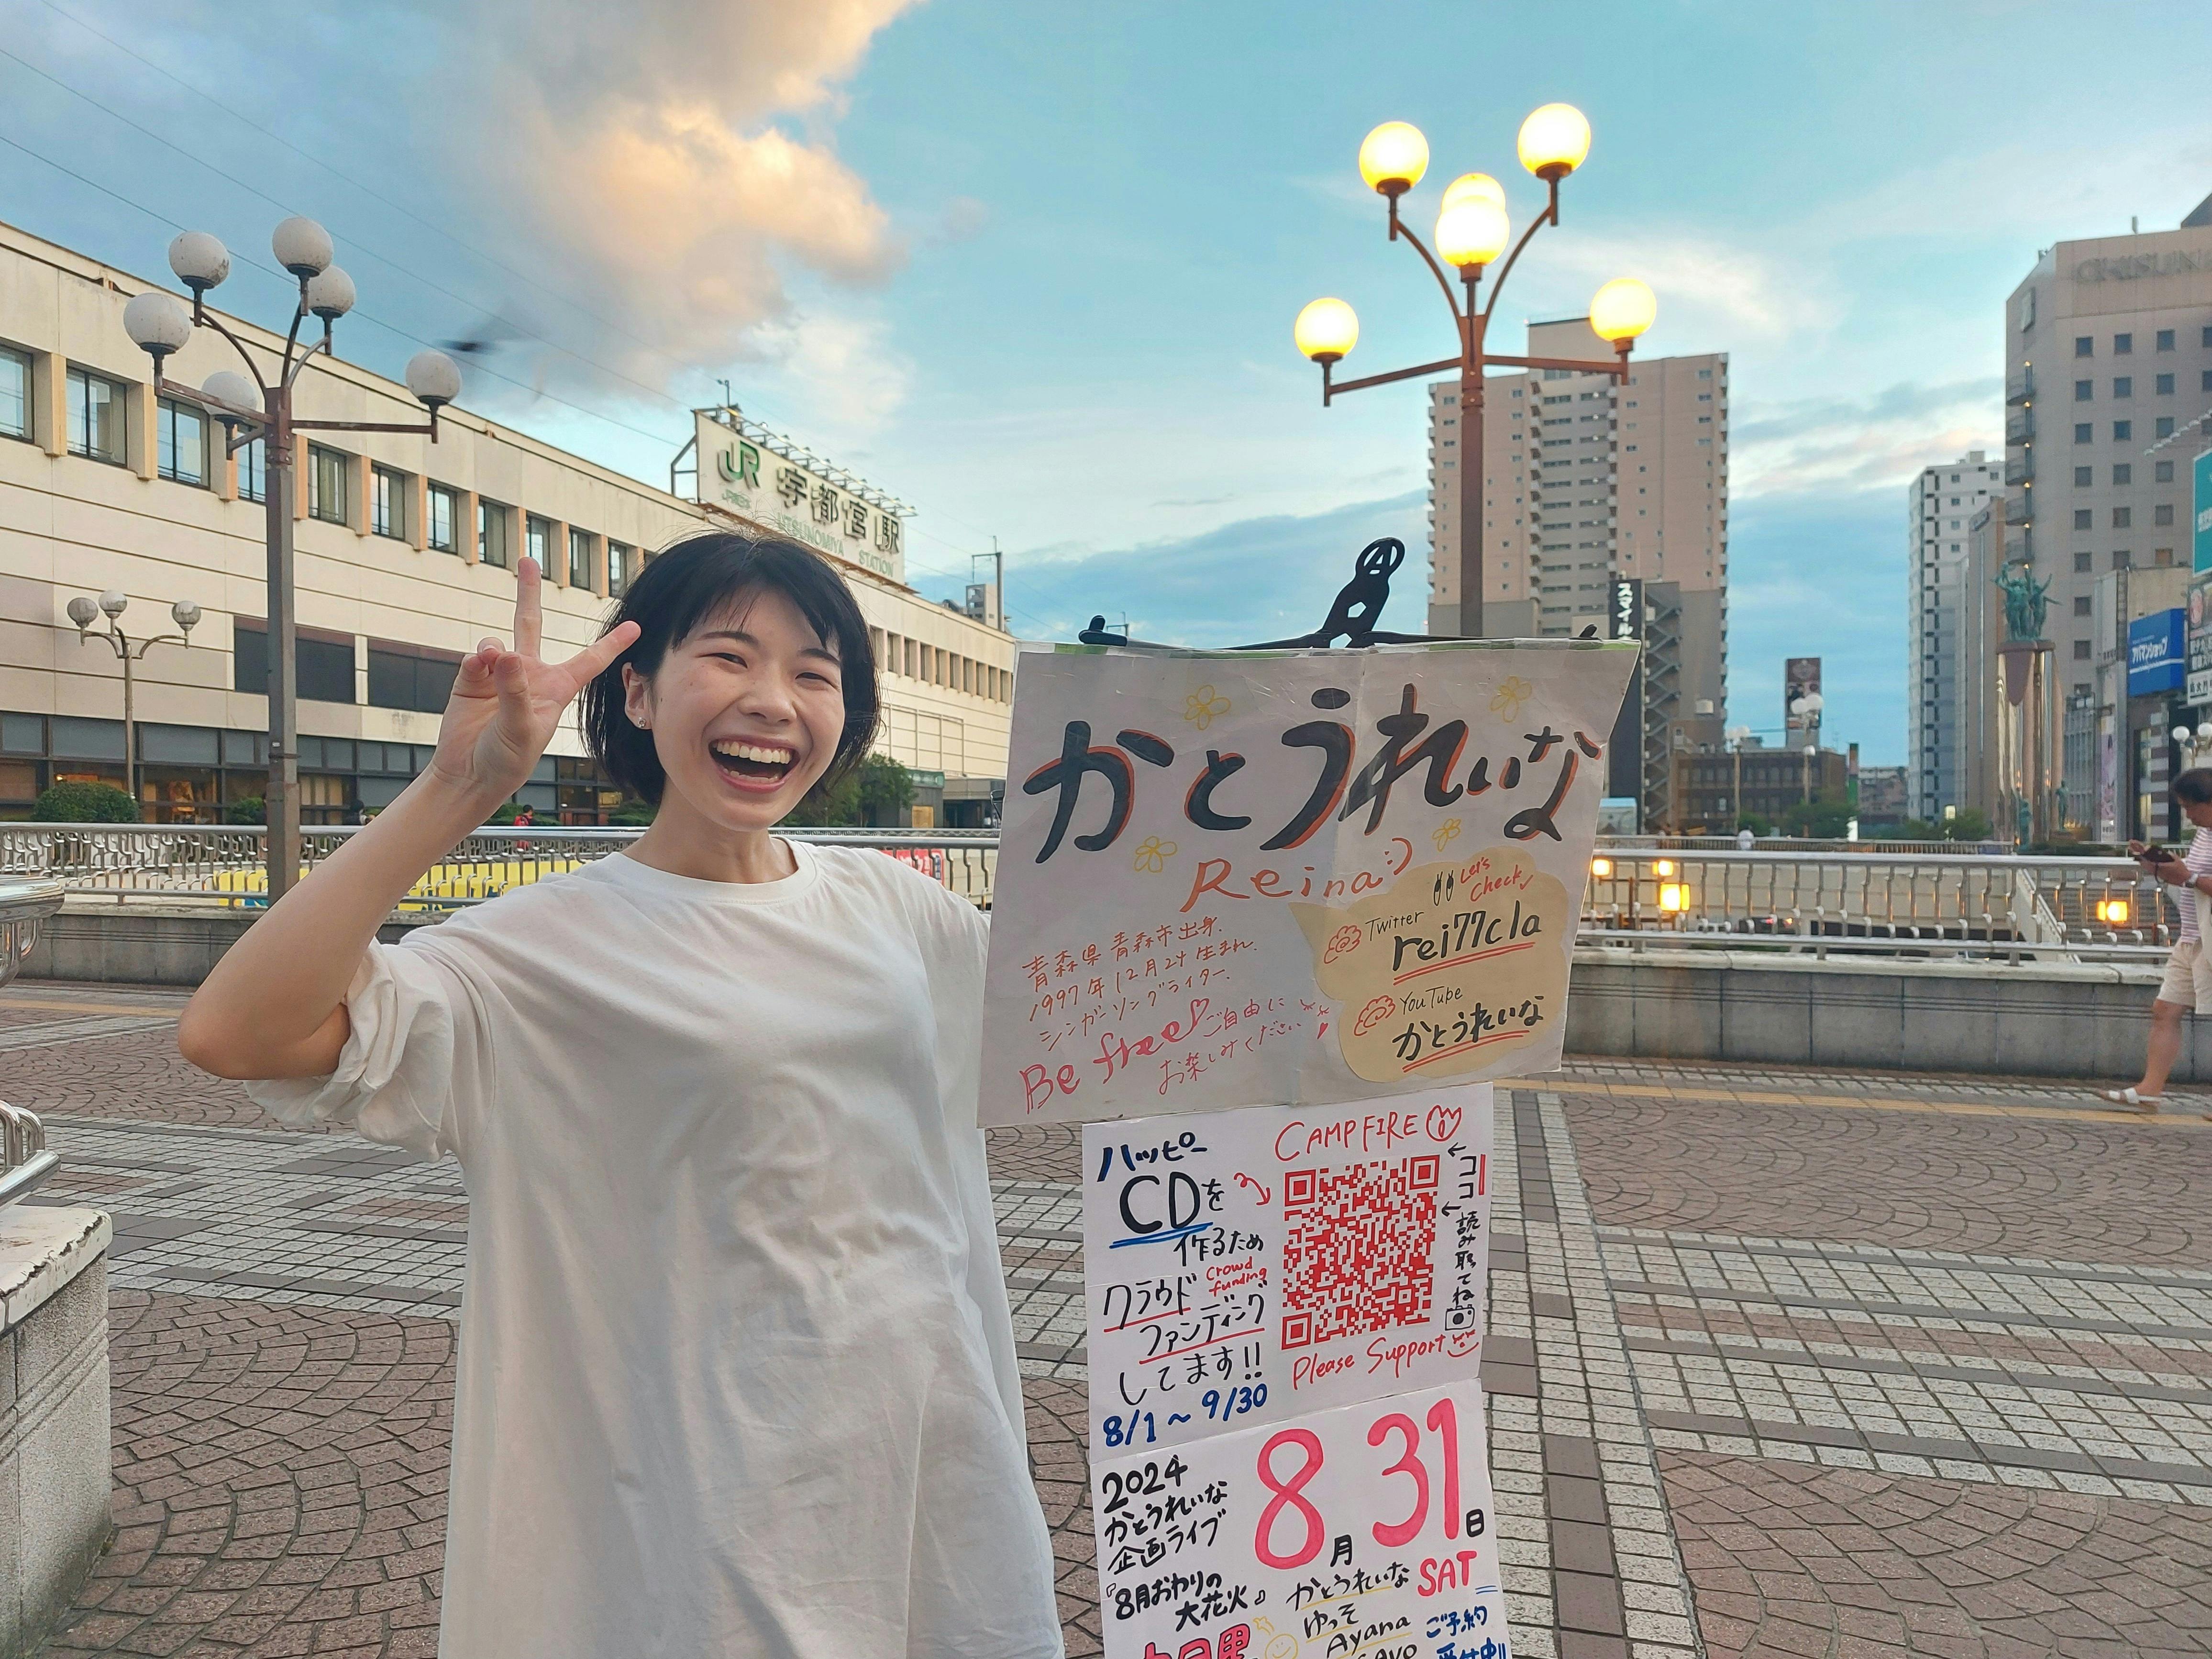 JR 宇都宮駅
UTSUNOMIYA STATION
スマイル
アパマンショップ
かとうれいな
Reina:)
Let's
Check✓
Twitter
rei77cla
YouTube
かとうれいな
青森県青森市出身.
1997年12月24生まれ.
シンガーソングライター.
Be free♡ご自由に
お楽しみください
ハッピー
CDを
作るため
クラウド
ファンディング
Crowd
funding
してます!!
8/1~9/30
CAMPFIRE
←ココ
←読み取てね
Please Support
2024
かとうれいな
企画ライブ
『8月おわりの
大花火』
8月31日
SAT
かとうれいな
ゆっそ
Ayana
ご予約
受付中!!